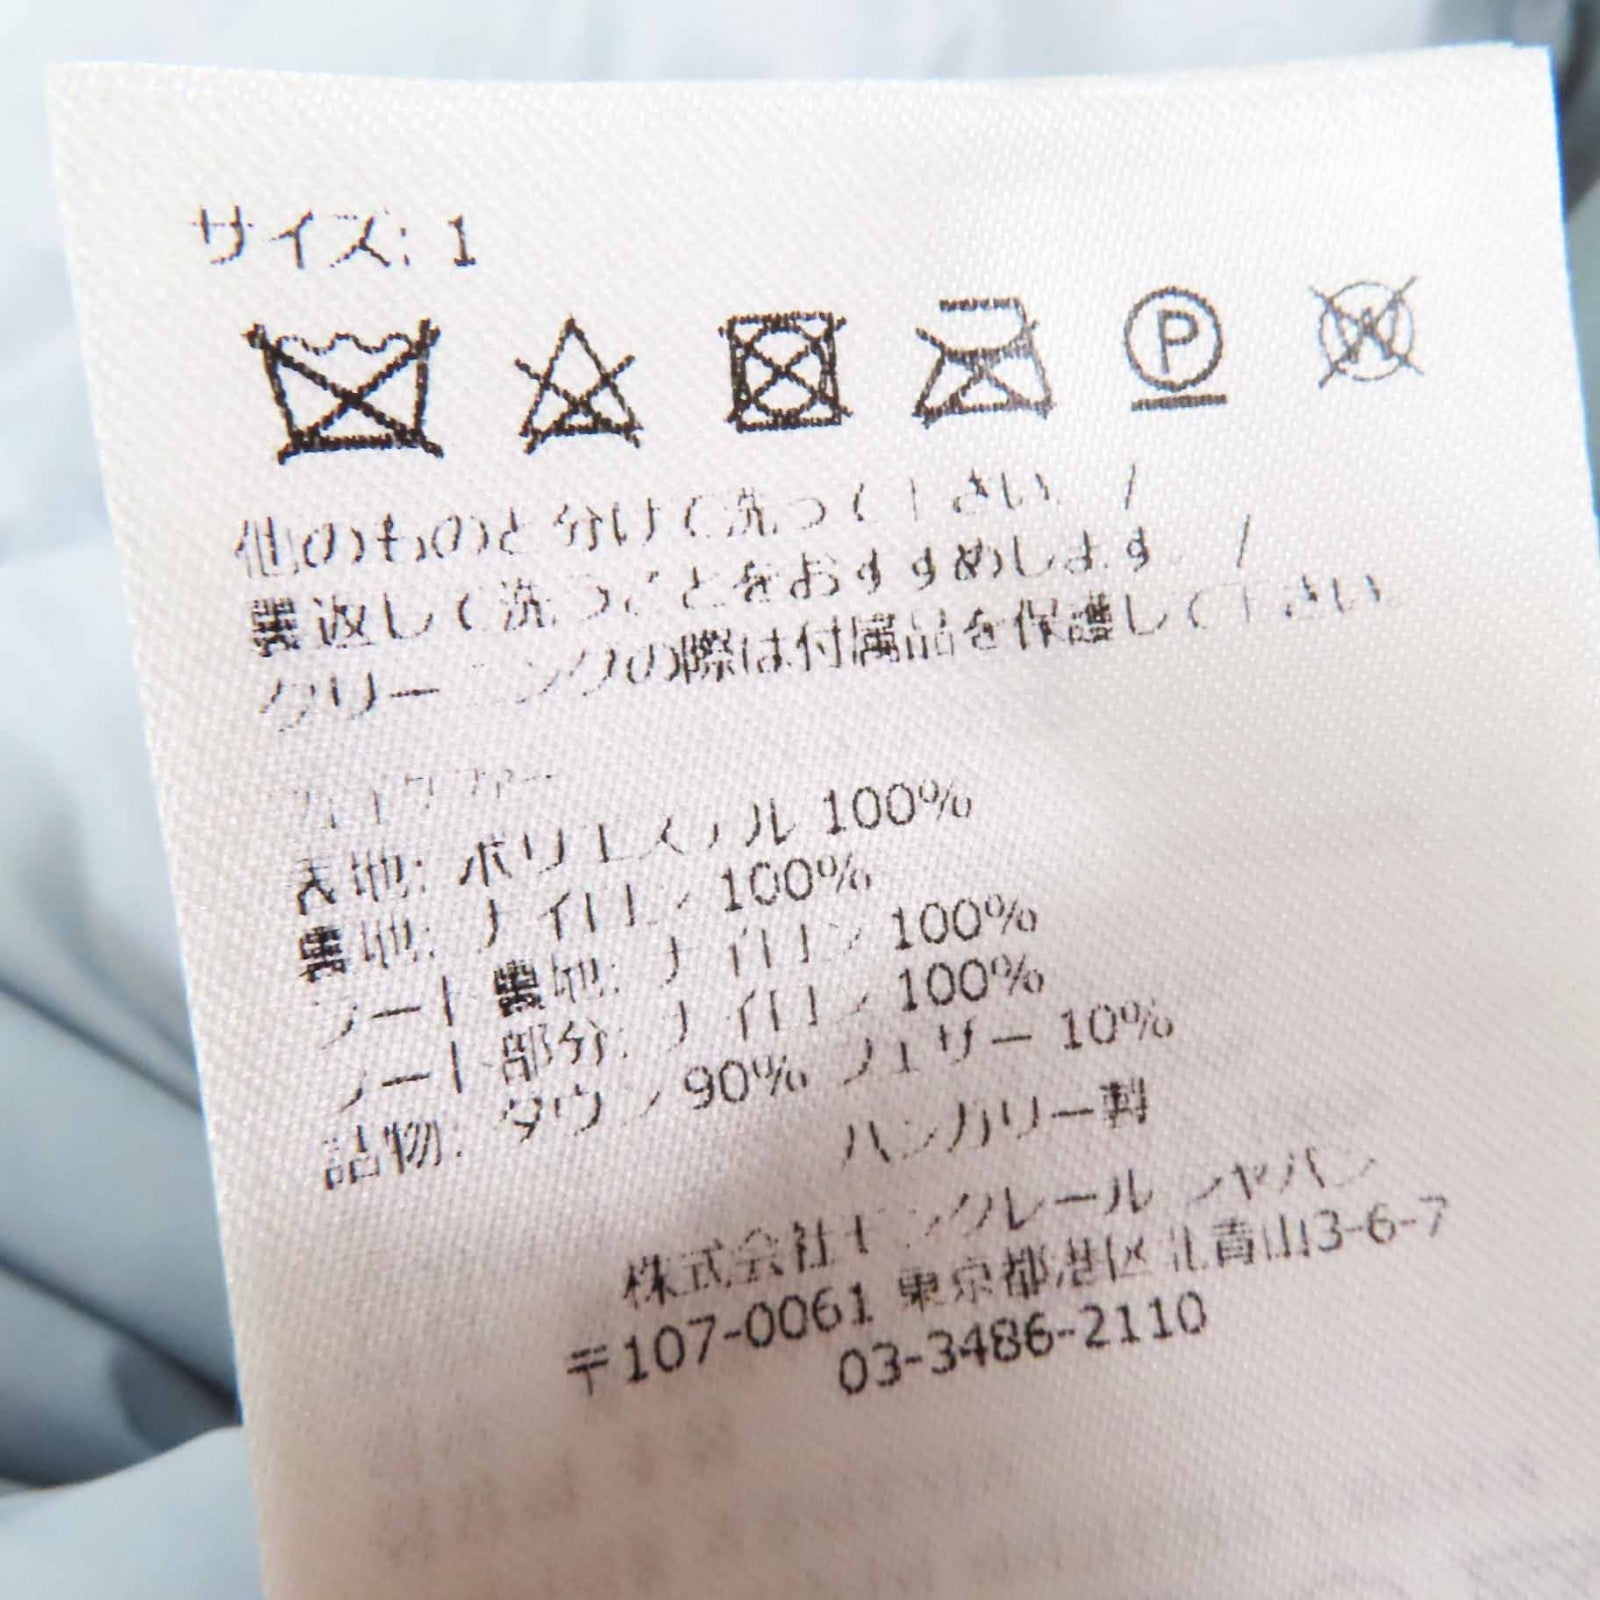 サイズ: 1
P
W
他のものと分けて洗って下さい。 /
裏返して洗うことをおすすめします。 /
クリーニングの際は付属品を保護して下さい。
フェイクファー
表地: ポリエステル 100%
裏地: ナイロン 100%
フード裏地: ナイロン 100%
フード部分: ナイロン 100%
詰物: ダウン 90% フェザー 10%
ハンガリー製
株式会社モンクレール ジャパン
〒107-0061 東京都港区北青山3-6-7
03-3486-2110